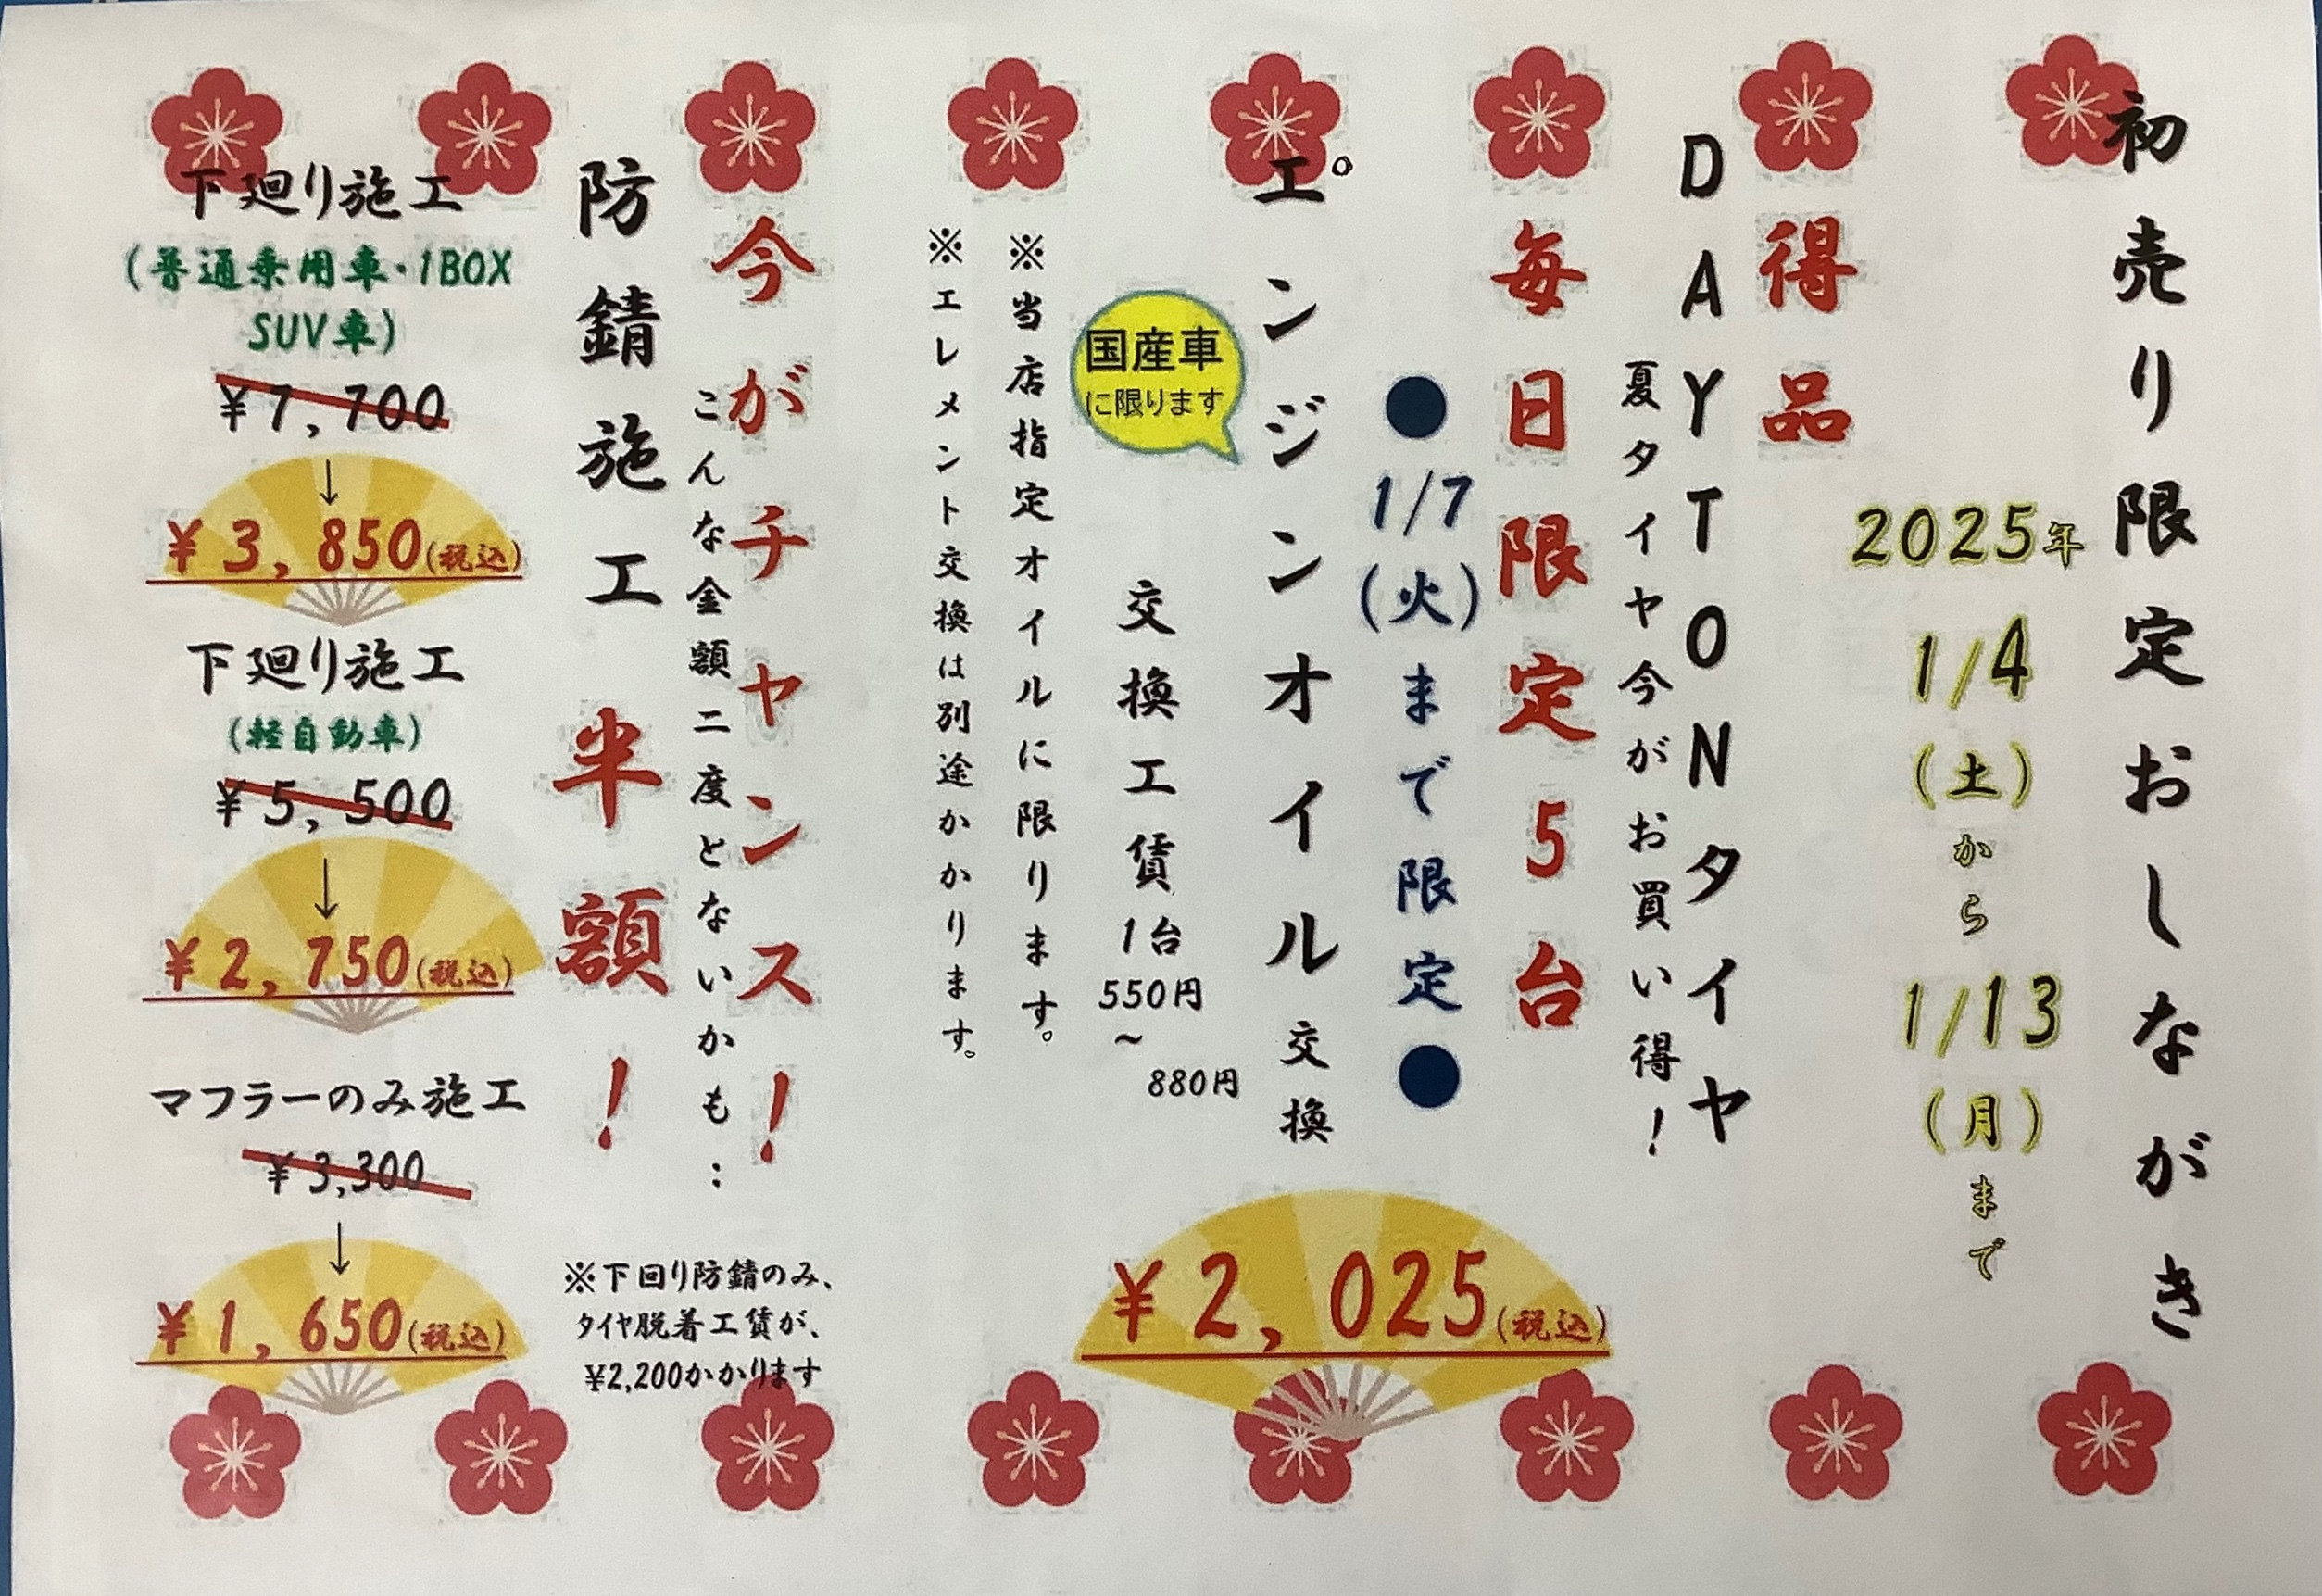 初売り限定おしながき
2025年
1/4
(土)
から
1/13
(月)
まで
得品
DAYTONタイヤ
夏タイヤ今がお買い得!
毎日限定5台
●1/7(火)まで限定●
エ゜ンジンオイル交換
国産車
に限ります
交換工賃1台
550円
~
880円
※当店指定オイルに限ります。
※エレメント交換は別途かかります。
¥2,025(税込)
今がチャンス!
こんな金額二度とないかも:
防錆施工 半額!
※下回り防錆のみ、
タイヤ脱着工賃が、
¥2,200かかります
下廻り施工
(普通乗用車・1BOX
SUV車)
¥7,700
↓
¥3,850(税込)
下廻り施工
(軽自動車)
¥5,500
↓
¥2,750(税込)
マフラーのみ施工
¥3,300
↓
¥1,650(税込)